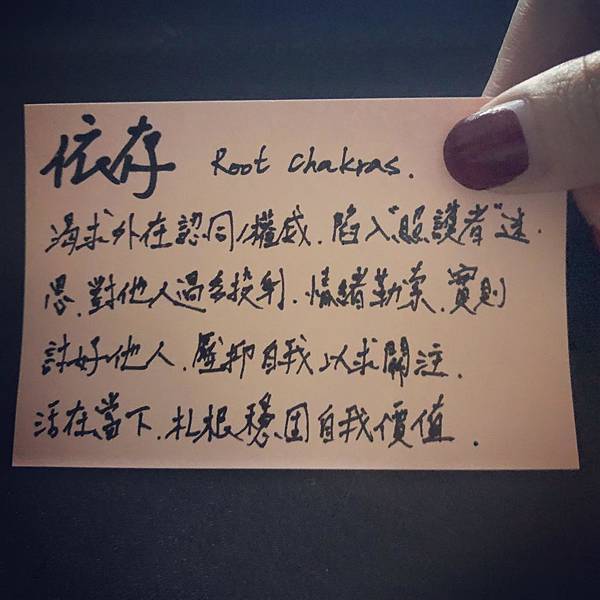 依存 Root Chakras.
渴求外在認同/權威.陷入"照護者"迷
思.對他人過多投射.情緒勒索.實則
討好他人.壓抑自我以求關注.
活在當下.扎根穩固自我價值.